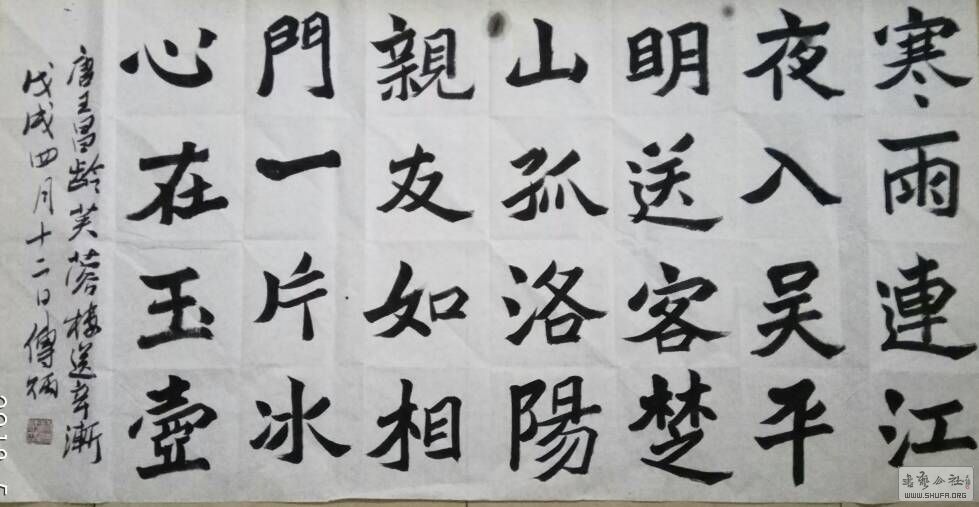 寒雨連江
夜入吴平
明送客楚
山孤洛陽
親友如相
門一片冰
心在玉壺
唐王昌龄芙蓉楼送辛漸
戊戌四月十二日傅炳
WWW.SHUFA.ORG